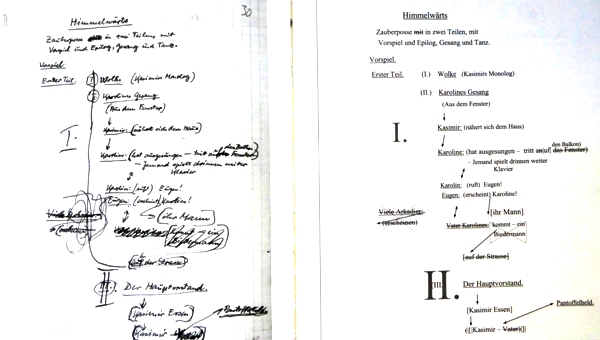 30
Himmelwärts
Zauberposse in zwei Teilen, mit
Vorspiel und Epilog, Gesang und Tanz.
Vorspiel.
Erster Teil. Wolke (Kasimirs Monolog)
Karolines Gesang
(Aus dem Fenster)
I.
Kasimir: (nähert sich dem Haus)
Karoline: (hat ausgesungen – tritt auf den Balkon)
– Jemand spielt drinnen weiter
Klavier
Karolin: (ruft) Eugen!
Eugen: (erscheint) Karoline!
(ihr Mann)
(auf der Strasse)
II. Der Hauptvorstand.
(Kasimir Essen)
Pantoffelheld
(Kasimir –
Himmelwärts
Zauberposse mit in zwei Teilen, mit
Vorspiel und Epilog, Gesang und Tanz.
Vorspiel.
Erster Teil. (I.) Wolke (Kasimirs Monolog)
(II.) Karolines Gesang
(Aus dem Fenster)
I.
Kasimir: (nähert sich dem Haus)
den Balkon)
Karoline: (hat ausgesungen – tritt an|uf| das Fenster)
– Jemand spielt drinnen weiter
Klavier
Karolin: (ruft) Eugen!
Eugen: (erscheint) Karoline!
Viele Arkadier: [ihr Mann]
(erscheinen) Vater Karolines kommt – ein
Biedermann
[auf der Strasse]
II. III Der Hauptvorstand.
Pantoffelheld.
[Kasimir Essen]
([[Kasimir – Vater)]]